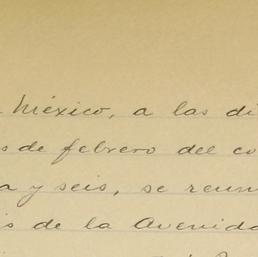 México, a las di
s de febrero del co
a y seis, se reun
is de la Avenida